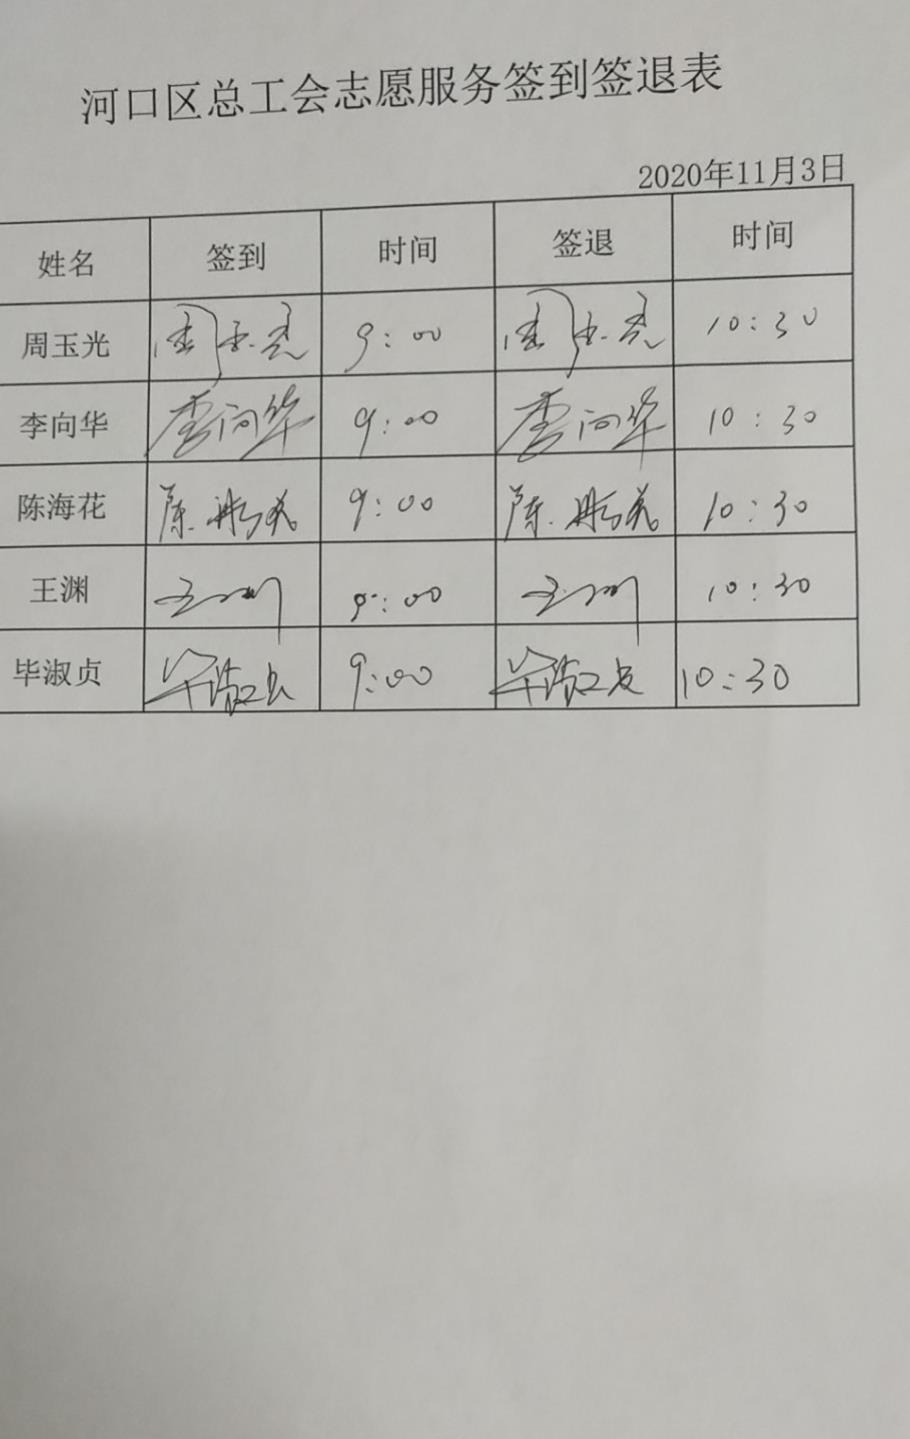 河口区总工会志愿服务签到签退表
2020年11月3日
姓名 签到 时间 签退 时间
周玉光 周玉光 9:00 周玉光 10:30
李向华 李向华 9:00 李向华 10:30
陈海花 陈海花 9:00 陈海花 10:30
王渊 王渊 9:00 王渊 10:30
毕淑贞 毕淑贞 9:00 毕淑贞 10:30